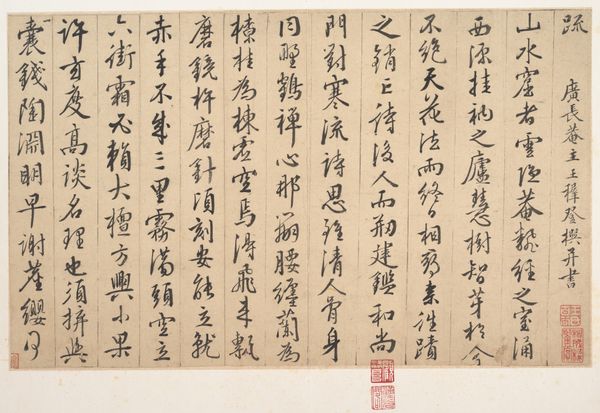 疏
廣長菴主王穉登撰并書
山水窟者雲隱菴翻經之室涌
西源挂衲之廬慧樹智芽於今
不絕天花法雨終日相尋奈往蹟
之銷亡待後人而刱建鑑和尚
門對寒流詩思強清人骨身
同野鶴禪心那腰纏蘭為
橑桂為棟虛空焉得飛來甎
磨鏡杵磨針頃刻安能立就
赤手不成三里霧滿頭空立
六街霜必賴大檀方興小果
許玄度高談名理也須與
囊錢陶淵明早謝簪纓